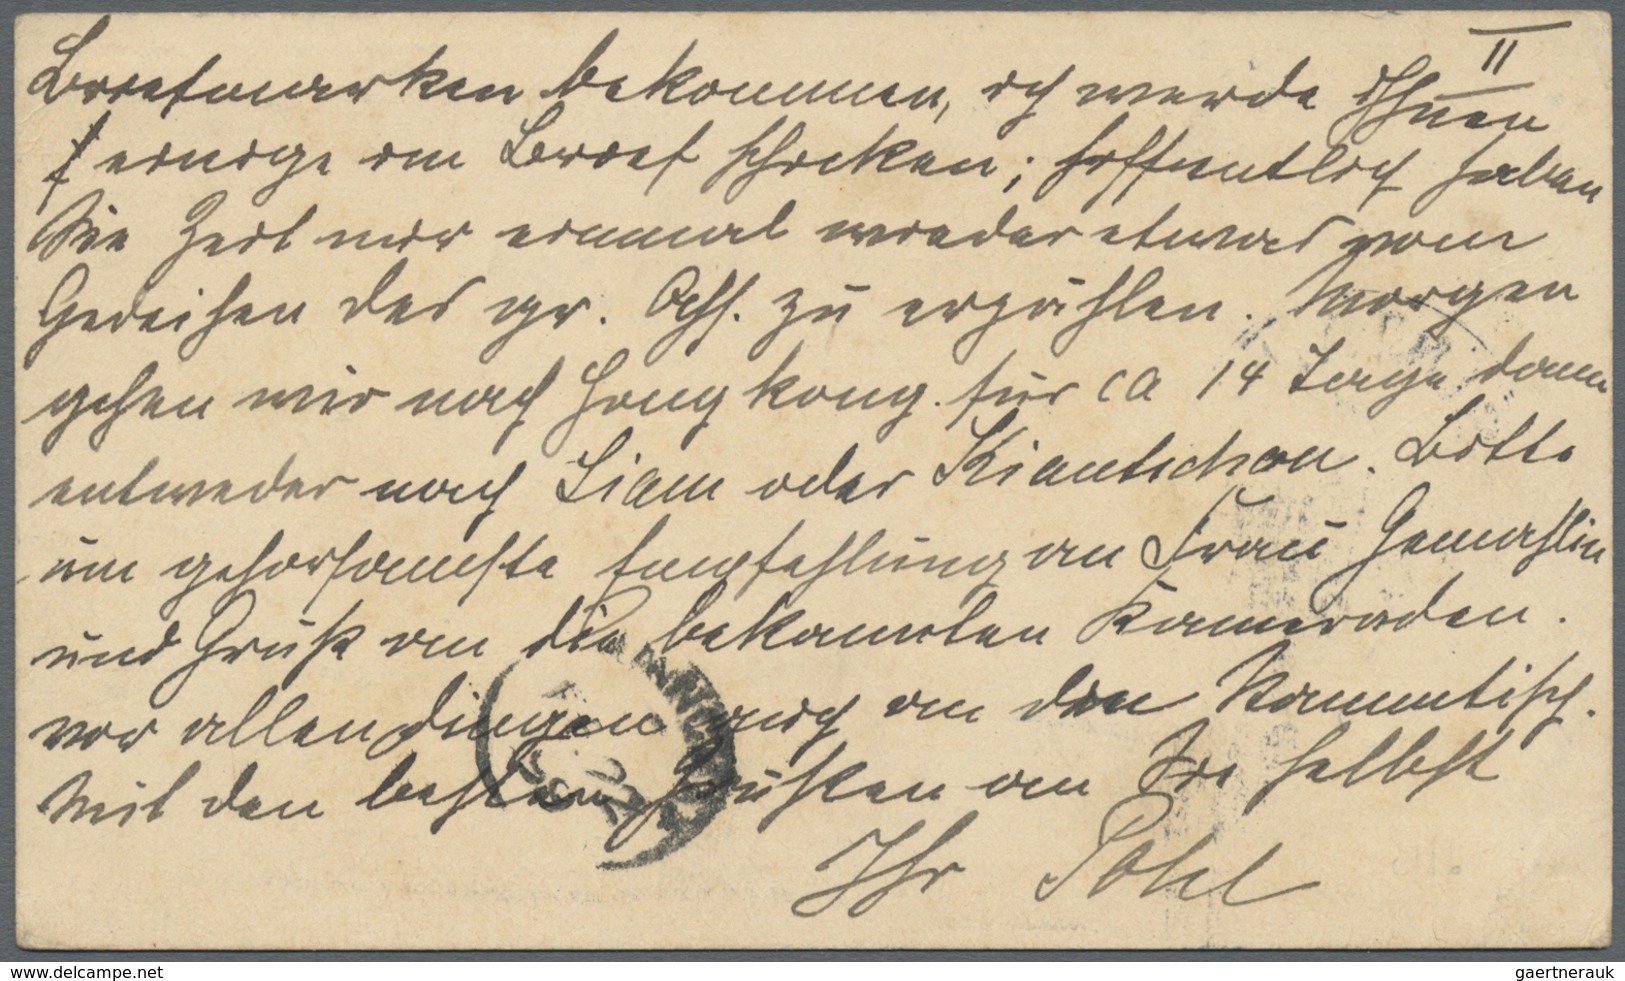 II
Briefmarken bekommen, ich werde Ihnen
einige im Brief schicken; hoffentlich haben
Sie Zeit mir einmal wieder etwas vom
Gedeihen des gr. zu erzählen. Morgen
gehen wir nach Hongkong für ca 14 Tage dann
entweder nach Siam oder Kiautschou. Bitte
um gehorsamste Empfehlung an Frau Gemahlin
und Gruß an die bekannten Kameraden.
vor allen Dingen auch an den Stammtisch.
Mit den besten Grüßen an Sie selbst
Ihr Pohl
www.delcampe.net
gaertnerauk